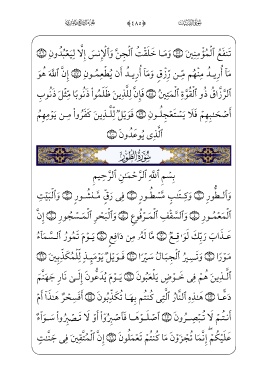 تَنفَعُ ٱلْمُؤْمِنِينَ ۝ وَمَا خَلَقْتُ ٱلْجِنَّ وَٱلْإِنسَ إِلَّا لِيَعْبُدُونِ ۝
مَآ أُرِيدُ مِنْهُم مِّن رِّزْقٍ وَمَآ أُرِيدُ أَن يُطْعِمُونِ ۝ إِنَّ ٱللَّهَ هُوَ
ٱلرَّزَّاقُ ذُو ٱلْقُوَّةِ ٱلْمَتِينُ ۝ فَإِنَّ لِلَّذِينَ ظَلَمُوا۟ ذَنُوبًا مِّثْلَ ذَنُوبِ
أَصْحَـٰبِهِمْ فَلَا يَسْتَعْجِلُونِ ۝ فَوَيْلٌ لِّلَّذِينَ كَفَرُوا۟ مِن يَوْمِهِمُ
ٱلَّذِى يُوعَدُونَ ۝
سُورَةُ الطُّورِ
بِسْمِ ٱللَّهِ ٱلرَّحْمَـٰنِ ٱلرَّحِيمِ
وَٱلطُّورِ ۝ وَكِتَـٰبٍ مَّسْطُورٍ ۝ فِى رَقٍّ مَّنشُورٍ ۝ وَٱلْبَيْتِ
ٱلْمَعْمُورِ ۝ وَٱلسَّقْفِ ٱلْمَرْفُوعِ ۝ وَٱلْبَحْرِ ٱلْمَسْجُورِ ۝ إِنَّ
عَذَابَ رَبِّكَ لَوَٰقِعٌ ۝ مَّا لَهُۥ مِن دَافِعٍ ۝ يَوْمَ تَمُورُ ٱلسَّمَآءُ
مَوْرًا ۝ وَتَسِيرُ ٱلْجِبَالُ سَيْرًا ۝ فَوَيْلٌ يَوْمَئِذٍ لِّلْمُكَذِّبِينَ ۝
ٱلَّذِينَ هُمْ فِى خَوْضٍ يَلْعَبُونَ ۝ يَوْمَ يُدَعُّونَ إِلَىٰ نَارِ جَهَنَّمَ
دَعًّا ۝ هَـٰذِهِ ٱلنَّارُ ٱلَّتِى كُنتُم بِهَا تُكَذِّبُونَ ۝ أَفَسِحْرٌ هَـٰذَآ أَمْ
أَنتُمْ لَا تُبْصِرُونَ ۝ ٱصْلَوْهَا فَٱصْبِرُوٓا۟ أَوْ لَا تَصْبِرُوا۟ سَوَآءٌ
عَلَيْكُمْ إِنَّمَا تُجْزَوْنَ مَا كُنتُمْ تَعْمَلُونَ ۝ إِنَّ ٱلْمُتَّقِينَ فِى جَنَّـٰتٍ